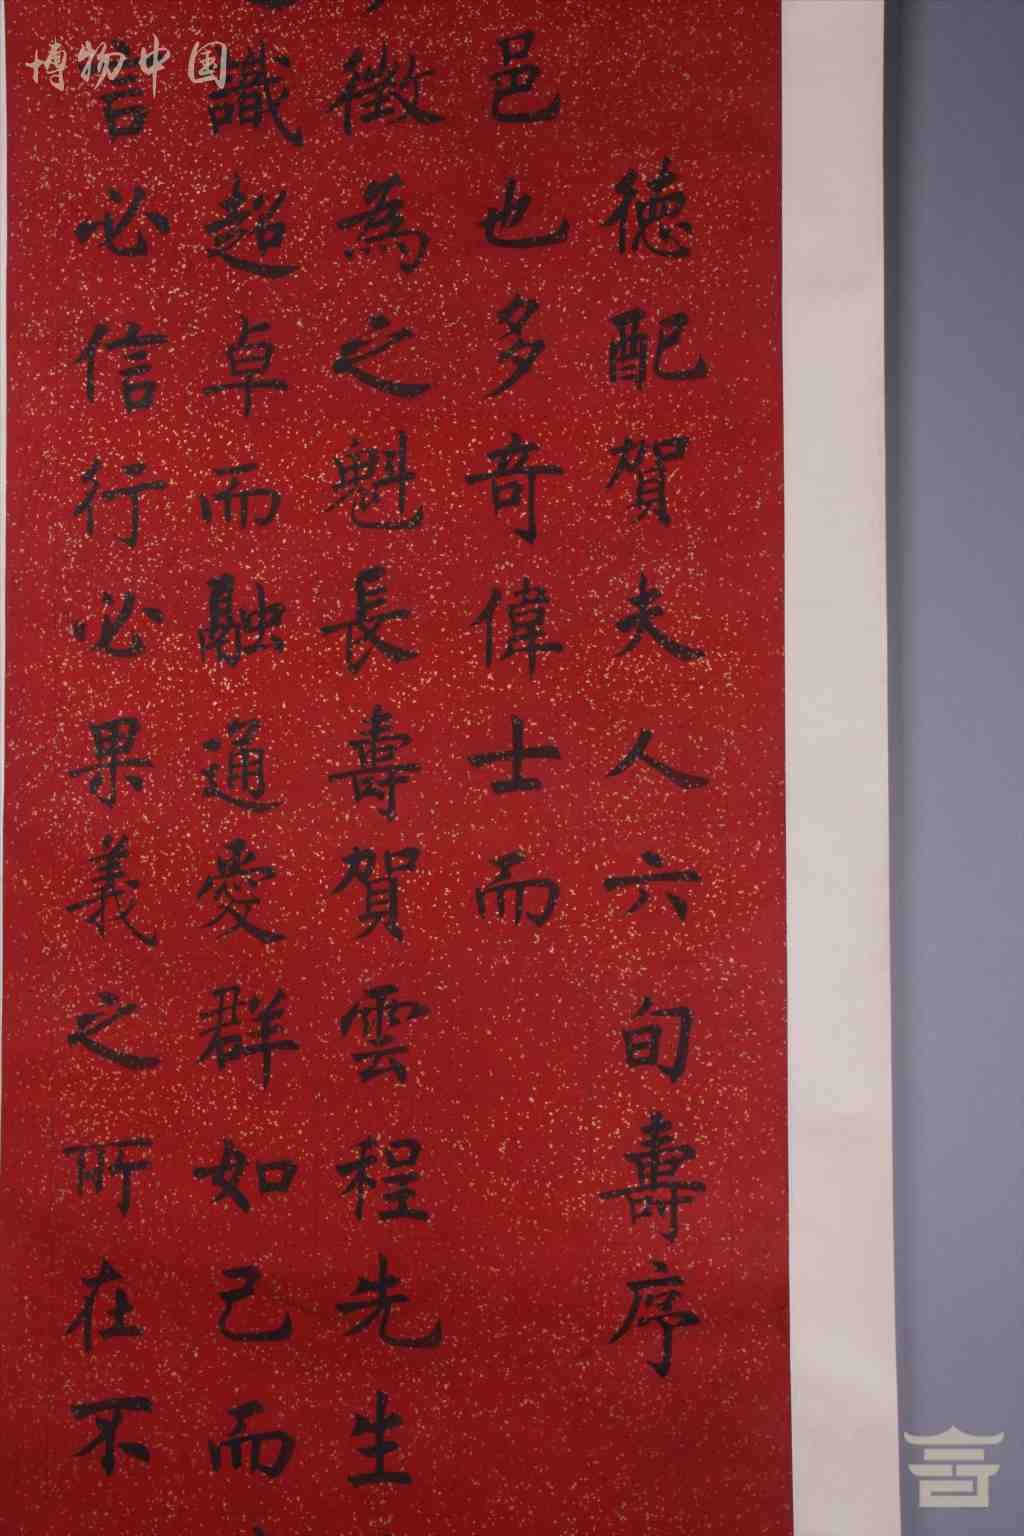 德配賀夫人六旬壽序
邑也多奇偉士而
徵為之魁長壽賀雲程先生
識超卓而融通愛群如己而
言必信行必果義之所在不
博物中国